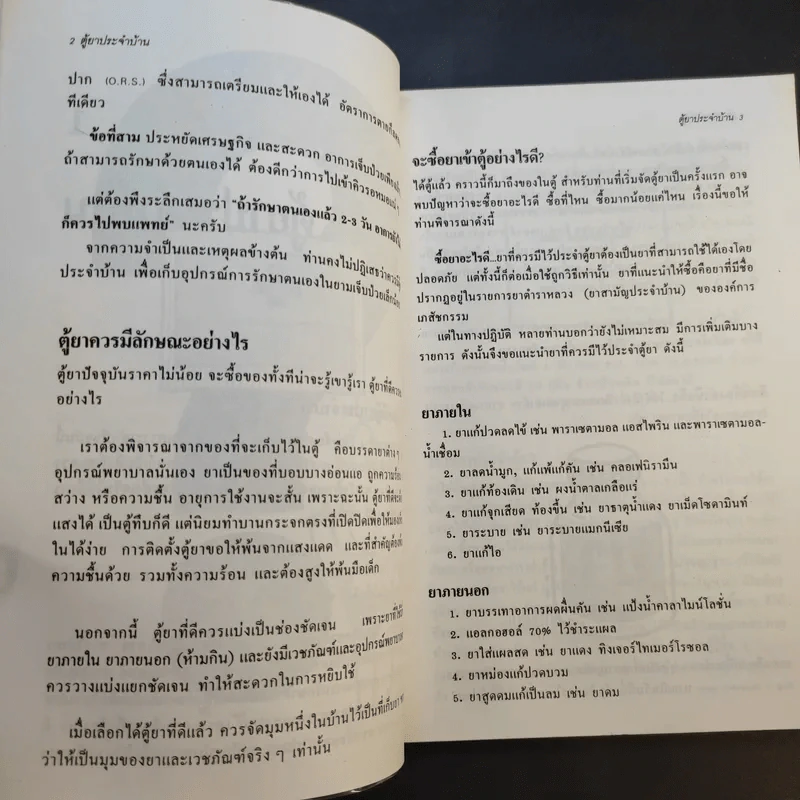 2 ตู้ยาประจำบ้าน
ปาก (O.R.S.) ซึ่งสามารถเตรียมและให้เองได้ อัตราการตายก็ลด
ทีเดียว
ข้อที่สาม ประหยัดเศรษฐกิจ และสะดวก อาการเจ็บป่วยเพียง
ถ้าสามารถรักษาด้วยตนเองได้ ต้องดีกว่าการไปเข้าคิวรอหมอ
แต่ต้องพึงระลึกเสมอว่า "ถ้ารักษาตนเองแล้ว 2-3 วัน อาการยัง
ก็ควรไปพบแพทย์" นะครับ
จากความจำเป็นและเหตุผลข้างต้น ท่านคงไม่ปฏิเสธว่าควร
ประจำบ้าน เพื่อเก็บอุปกรณ์การรักษาตนเองในยามเจ็บป่วยเล็กน้อย
ตู้ยาควรมีลักษณะอย่างไร
ตู้ยาปัจจุบันราคาไม่น้อย จะซื้อของทั้งทีน่าจะรู้เขารู้เรา ตู้ยาที่ดีควร
อย่างไร
เราต้องพิจารณาจากของที่จะเก็บไว้ในตู้ คือบรรดายาต่างๆ
อุปกรณ์พยาบาลนั่นเอง ยาเป็นของที่บอบบางอ่อนแอ ถูกความร้อน
สว่าง หรือความชื้น อายุการใช้งานจะสั้น เพราะฉะนั้น ตู้ยาที่ดีจะ
แสงได้ เป็นตู้ทึบก็ดี แต่นิยมทำบานกระจกตรงที่เปิดปิดเพื่อให้มอง
ในได้ง่าย การติดตั้งตู้ยาขอให้พ้นจากแสงแดด และที่สำคัญต้อง
ความชื้นด้วย รวมทั้งความร้อน และต้องสูงให้พ้นมือเด็ก
นอกจากนี้ ตู้ยาที่ดีควรแบ่งเป็นช่องชัดเจน เพราะยาที่ใช้
ยาภายใน ยาภายนอก (ห้ามกิน) และยังมีเวชภัณฑ์และอุปกรณ์พยาบาล
ควรวางแบ่งแยกชัดเจน ทำให้สะดวกในการหยิบใช้
เมื่อเลือกได้ตู้ยาที่ดีแล้ว ควรจัดมุมหนึ่งในบ้านไว้เป็นที่เก็บยา
ว่าให้เป็นมุมของยาและเวชภัณฑ์จริง ๆ เท่านั้น
ตู้ยาประจำบ้าน 3
จะซื้อยาเข้าตู้อย่างไรดี?
ได้ตู้แล้ว คราวนี้ก็มาถึงของในตู้ สำหรับท่านที่เริ่มจัดตู้ยาเป็นครั้งแรก อาจ
พบปัญหาว่าจะซื้อยาอะไรดี ซื้อที่ไหน ซื้อมากน้อยแค่ไหน เรื่องนี้ขอให้
ท่านพิจารณาดังนี้
ซื้อยาอะไรดี...ยาที่ควรมีไว้ประจำตู้ยาต้องเป็นยาที่สามารถใช้ได้เองโดย
ปลอดภัย แต่ทั้งนี้ก็ต่อเมื่อใช้ถูกวิธีเท่านั้น ยาที่แนะนำให้ซื้อคือยาที่มีชื่อ
ปรากฏอยู่ในรายการยาตำราหลวง (ยาสามัญประจำบ้าน) ขององค์การ
เภสัชกรรม
แต่ในทางปฏิบัติ หลายท่านบอกว่ายังไม่เหมาะสม มีการเพิ่มเติมบาง
รายการ ดังนั้นจึงขอแนะนำยาที่ควรมีไว้ประจำตู้ยา ดังนี้
ยาภายใน
1. ยาแก้ปวดลดไข้ เช่น พาราเซตามอล แอสไพริน และพาราเซตามอล-
น้ำเชื่อม
2. ยาลดน้ำมูก, แก้แพ้แก้คัน เช่น คลอเฟนิรามีน
3. ยาแก้ท้องเดิน เช่น ผงน้ำตาลเกลือแร่
4. ยาแก้จุกเสียด ท้องขึ้น เช่น ยาธาตุน้ำแดง ยาเม็ดโซดามินท์
5. ยาระบาย เช่น ยาระบายแมกนีเซีย
6. ยาแก้ไอ
ยาภายนอก
1. ยาบรรเทาอาการผดผื่นคัน เช่น แป้งน้ำคาลาไมน์โลชั่น
2. แอลกอฮอล์ 70% ไว้ชำระแผล
3. ยาใส่แผลสด เช่น ยาแดง ทิงเจอร์ไทเมอร์โรซอล
4. ยาหม่องแก้ปวดบวม
5. ยาสูดดมแก้เป็นลม เช่น ยาดม